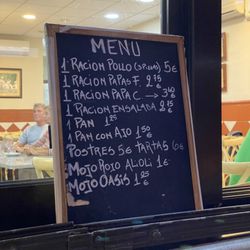 MENU
1 RACION POLLO (3 PIEZAS) 5€
1 RACION PAPAS F. 2'75 €
1 RACION PAPA C → 3'60 €
1 RACION ENSALADA 2'75 €
1 PAN 1'25
1 PAN CON AJO 1'50 €
POSTRES 5€ TARTAS 6€
MOJO ROJO ALIOLI 1€
MOJO OASIS 1'25 €